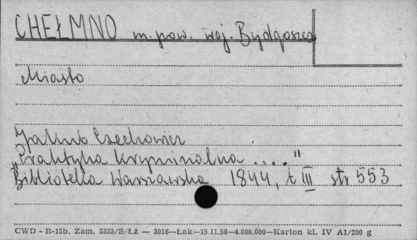 CHEŁMNO m. pow. woj. Bydgoszcz
Miasto
Jakub Czechowicz
"Praktyka kryminalna ...."
Biblioteka Warszawska 1844, t III str 553
CWD - B-15b. Zam. 5322/S/Łż — 3016—Łak—15.11.58—4.000.000—Karton kl. IV A1/200 g